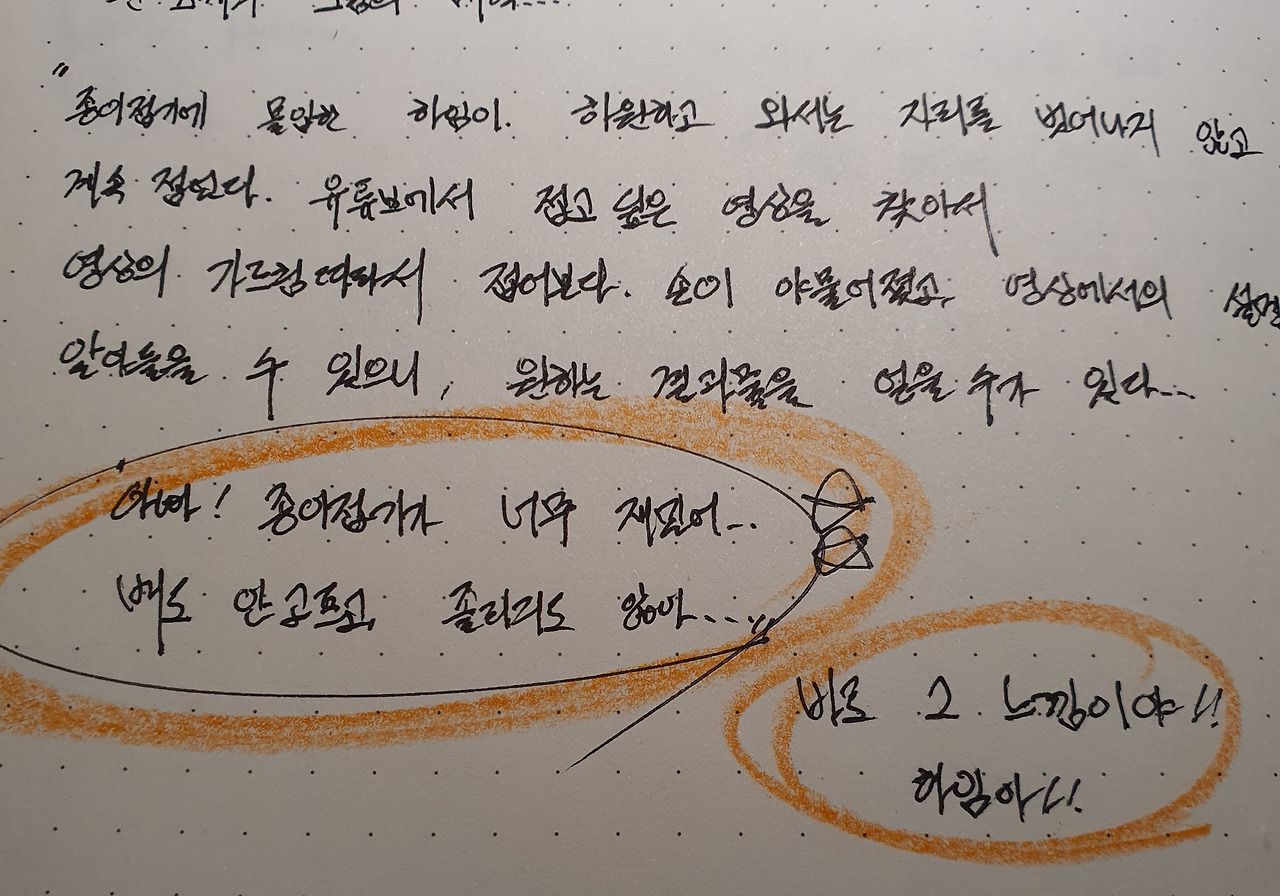 "종이접기에 몰입한 하임이. 하원하고 와서는 자리를 벗어나지 않고
계속 접는다. 유튜브에서 접고 싶은 영상을 찾아서
영상의 가르침따라서 접어본다. 손이 야물어졌고, 영상에서의 설명
알아들을 수 있으니, 원하는 결과물을 얻을 수가 있다...
아빠! 종이접기가 너무 재밌어...
배도 안고프고, 졸리지도 않아...."
바로 그 느낌이야!!
하임아!!